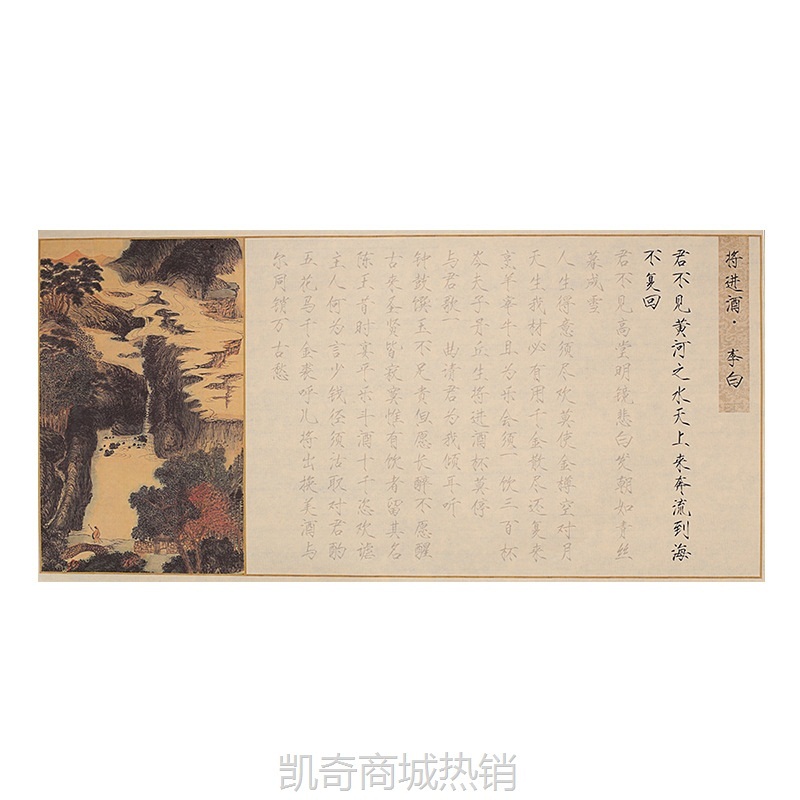 将进酒·李白
君不见黄河之水天上来奔流到海
不复回
君不见高堂明镜悲白发朝如青丝
暮成雪
人生得意须尽欢莫使金樽空对月
天生我材必有用千金散尽还复来
烹羊宰牛且为乐会须一饮三百杯
岑夫子丹丘生将进酒杯莫停
与君歌一曲请君为我倾耳听
钟鼓馔玉不足贵但愿长醉不愿醒
古来圣贤皆寂寞惟有饮者留其名
陈王昔时宴平乐斗酒十千恣欢谑
主人何为言少钱径须沽取对君酌
五花马千金裘呼儿将出换美酒与
尔同销万古愁
凯奇商城热销